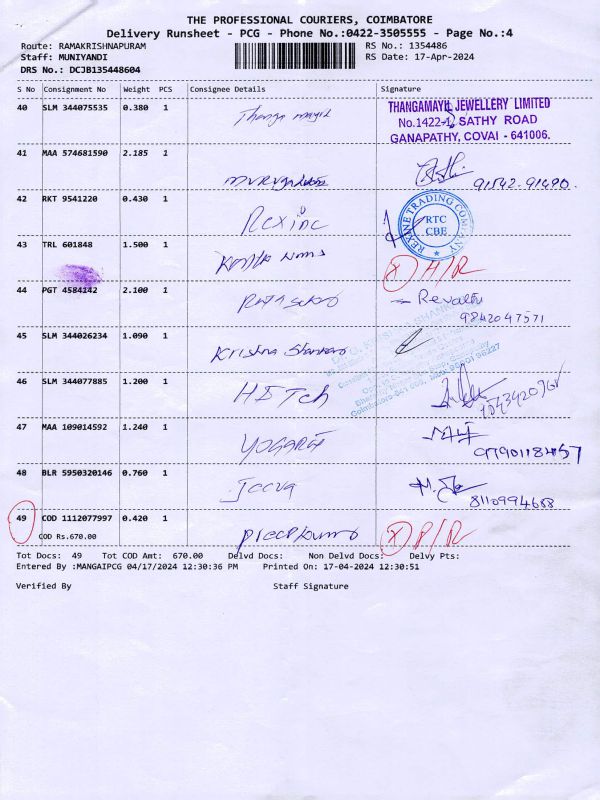 THE PROFESSIONAL COURIERS, COIMBATORE
Delivery Runsheet - PCG - Phone No.:0422-3505555 - Page No.:4
Route: RAMAKRISHNAPURAM RS No.: 1354486
Staff: MUNIYANDI RS Date: 17-Apr-2024
DRS No.: DCJB135448604
S No Consignment No Weight PCS Consignee Details Signature
40 SLM 344075535 0.380 1 Thanga mayil THANGAMAYIL JEWELLERY LIMITED
No.1422-1, SATHY ROAD
GANAPATHY, COVAI - 641006.
41 MAA 574681590 2.185 1
91542-91490.
42 RKT 9541220 0.430 1 Rexinc REXINE TRADING COMPANY
RTC
CBE
43 TRL 601848 1.500 1 (X) H/R
44 PGT 4584142 2.100 1 Revathi
9842047571
45 SLM 344026234 1.090 1 Krishna
46 SLM 344077885 1.200 1 HI Tch
47 MAA 109014592 1.240 1
48 BLR 5950320146 0.760 1 Jeeva
8110994688
49 COD 1112077997 0.420 1 (X) P/R
COD Rs.670.00
Tot Docs: 49 Tot COD Amt: 670.00 Delvd Docs: Non Delvd Docs: Delvy Pts:
Entered By :MANGAIPCG 04/17/2024 12:30:36 PM Printed On: 17-04-2024 12:30:51
Verified By Staff Signature